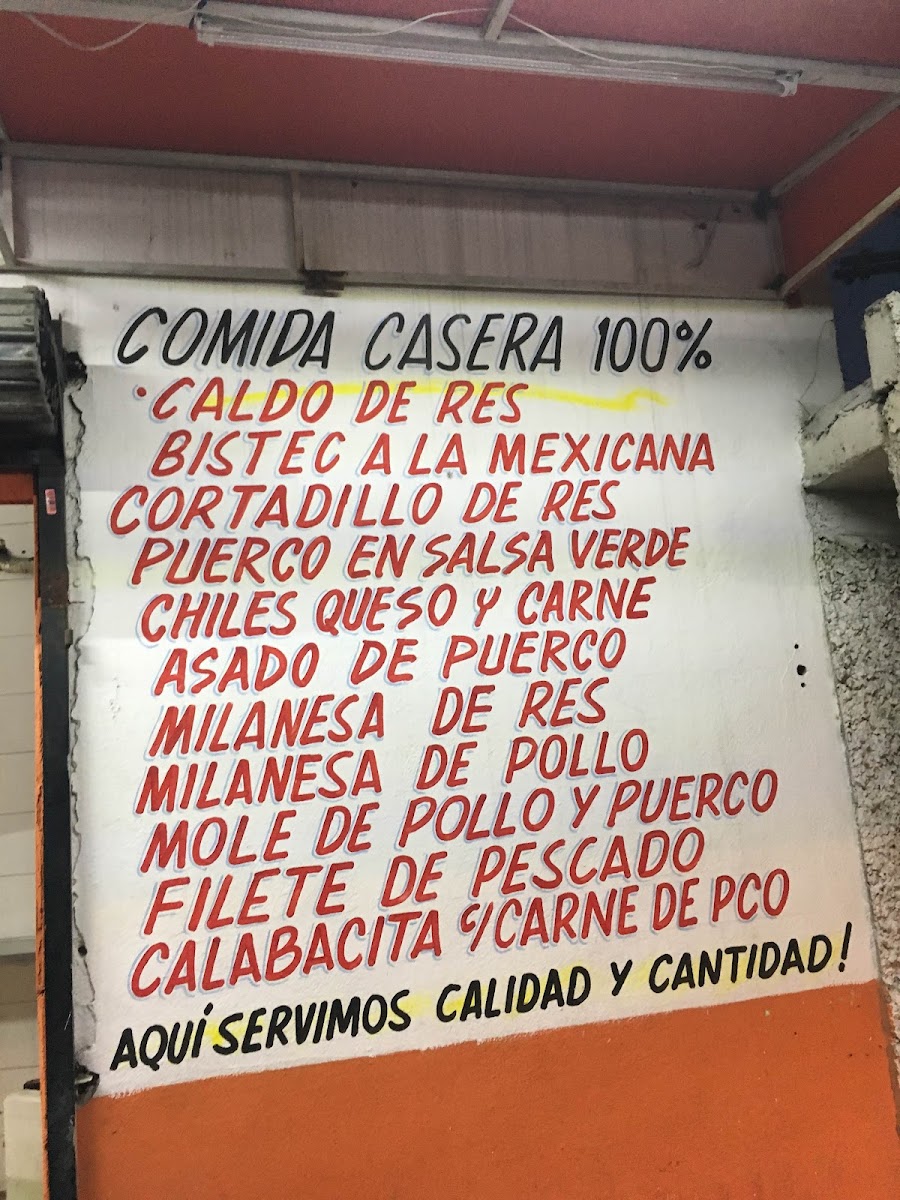 COMIDA CASERA 100%
·CALDO DE RES
BISTEC A LA MEXICANA
CORTADILLO DE RES
PUERCO EN SALSA VERDE
CHILES QUESO Y CARNE
ASADO DE PUERCO
MILANESA DE RES
MILANESA DE POLLO
MOLE DE POLLO Y PUERCO
FILETE DE PESCADO
CALABACITA C/CARNE DE PCO
AQUÍ SERVIMOS CALIDAD Y CANTIDAD!